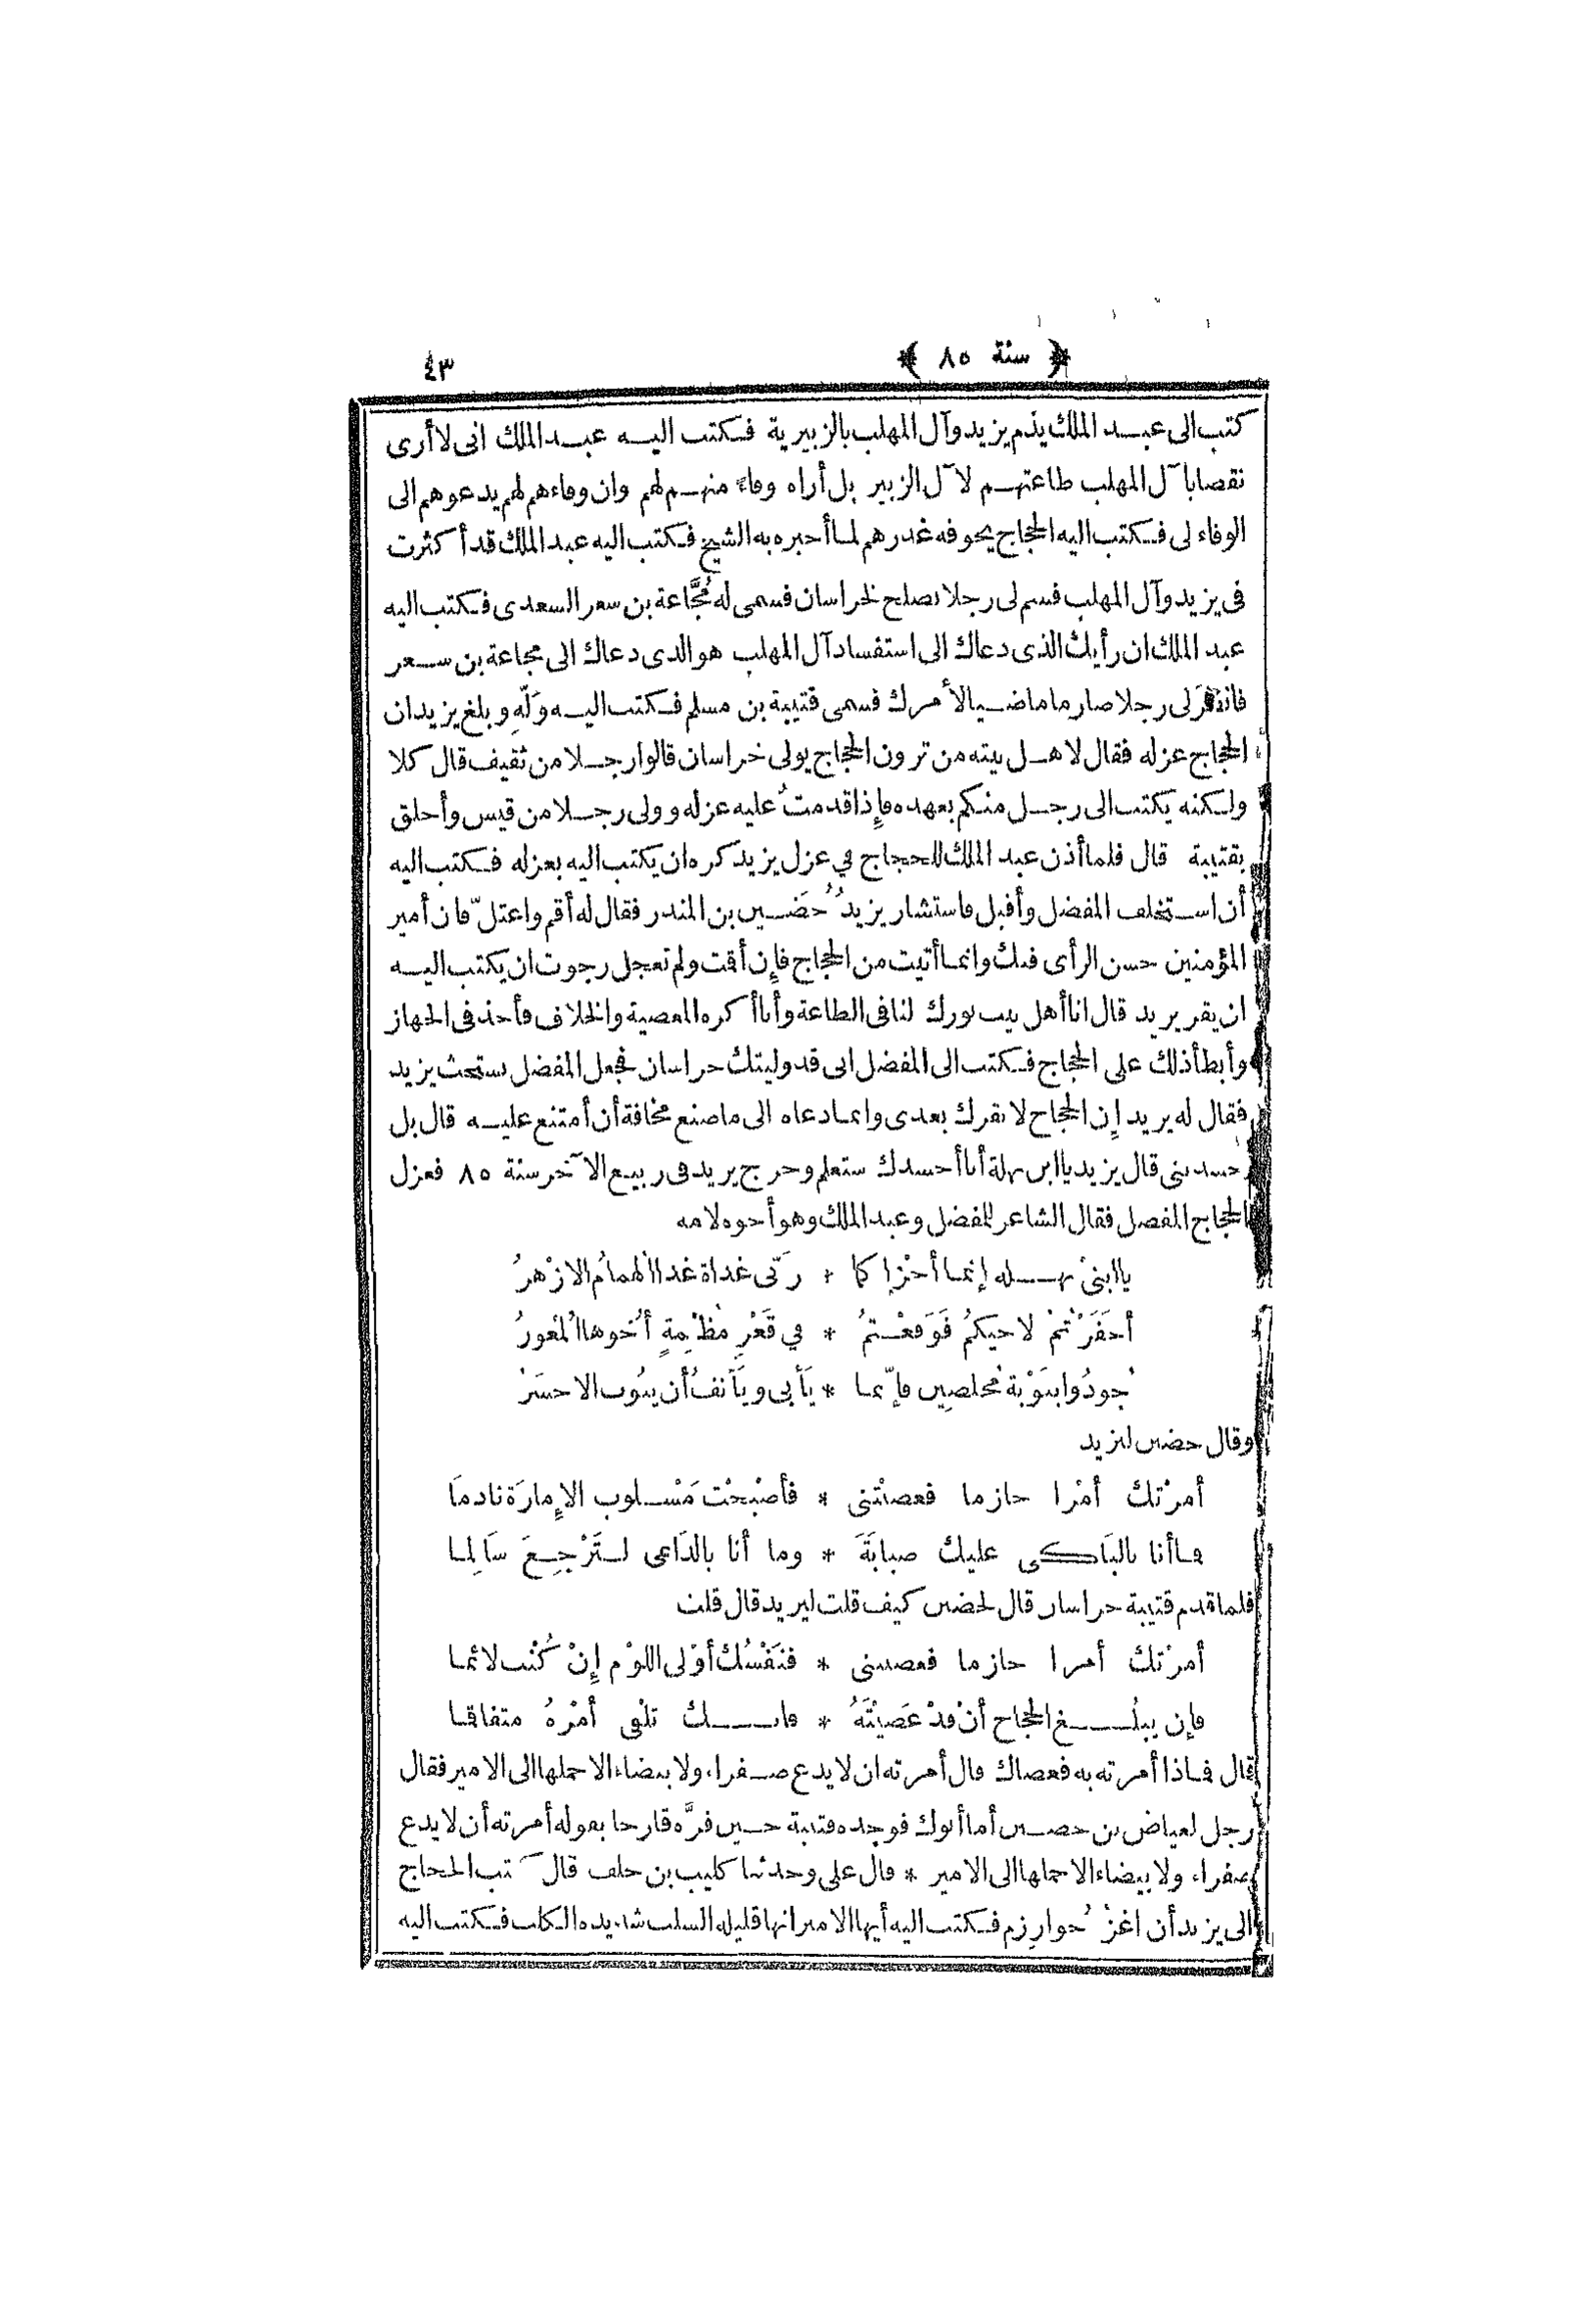 ﴿ سنة ٨٥ ﴾ ٤٣
كتب الى عبد الملك يذم يزيد وآل المهلب بالزبيرية فكتب اليه عبد الملك انى لا أرى
نقصا بآل المهلب طاعتهم لآل الزبير بل أراه وفاء منهم لهم وان وفاءهم لهم يدعوهم الى
الوفاء لى فكتب اليه الحجاج يخوفه غدرهم لما أخبره به الشيخ فكتب اليه عبد الملك قد أكثرت
فى يزيد وآل المهلب فسم لى رجلا يصلح لخراسان فسمى له مُجَّاعة بن سعر السعدى فكتب اليه
عبد الملك ان رأيك الذى دعاك الى استفساد آل المهلب هو الذى دعاك الى مجاعة بن سعر
فانظر لى رجلا صارما ماضيا لأمرك فسمى قتيبة بن مسلم فكتب اليه وَلِّهِ وبلغ يزيد ان
الحجاج عزله فقال لاهل بيته من ترون الحجاج يولى خراسان قالوا رجلا من ثقيف قال كلا
ولكنه يكتب الى رجل منكم بعهده فإذا قدمتُ عليه عزله وولى رجلا من قيس وأخلق
بقتيبة قال فلما أذن عبد الملك للحجاج في عزل يزيد كره ان يكتب اليه بعزله فكتب اليه
أن استخلف المفضل وأقبل فاستشار يزيدُ حُضَين بن المنذر فقال له أقم واعتلّ فان أمير
المؤمنين حسن الرأى فيك وانما أتيت من الحجاج فإن أقمت ولم تعجل رجوت ان يكتب اليه
ان يقر يزيد قال انا أهل بيت بورك لنا فى الطاعة وأنا أكره المعصية والخلاف فأخذ فى الجهاز
وأبطأ ذلك على الحجاج فكتب الى المفضل انى قد وليتك خراسان فجعل المفضل يستحث يزيد
فقال له يزيد إن الحجاج لا يقرك بعدى وانما دعاه الى ما صنع مخافة أن أمتنع عليه قال بل
حسدتنى قال يزيد يا ابن بهلة أنا أحسدك ستعلم وخرج يزيد فى ربيع الآخر سنة ٨٥ فعزل
الحجاج المفضل فقال الشاعر للمفضل وعبد الملك وهو أخوه لامه
يا ابنىْ بهلة إنما أخزاكما * ربّى غداة غدا الهمامُ الازْهرُ
أحَفَرْتمْ لاخيكمُ فَوَقعْتمُ * في قَعْرِ مظْلِمةٍ أخُوها المْغورُ
جُودُوا بتَوْبة مُخلصِين فإنّما * يَأبى ويَأنفُ أن يتُوب الاخسَرْ
وقال حضين ليزيد
أمرْتك أمْرا حازما فعصيْتنى * فأصْبحْت مَسْلوب الإمارَة نادمَا
فما أنا بالبَاكى عليك صبابَةً * وما أنا بالدَاعى لتَرْجِعَ سَالِما
فلما قدم قتيبة خراسان قال لحضين كيف قلت ليزيد قال قلت
أمرْتك أمرا حازما فعصيتنى * فنَفْسُك أوْلى اللوْم إنْ كُنْت لائما
فإن يبلُغ الحجاج أنْ قدْ عَصيْتَهُ * فانك تلْقى أمْرهُ متفاقما
قال فماذا أمرته به فعصاك قال أمرته ان لا يدع صفراء ولا بيضاء الا حملها الى الامير فقال
رجل لعياض بن حضين أما أبوك فوجده قتيبة حين فرَّه قارحا بقوله أمرته أن لا يدع
صفراء ولا بيضاء الا حملها الى الامير * قال على وحدثنا كليب بن خلف قال كتب الحجاج
الى يزيد أن اغزُ خُوارزم فكتب اليه أيها الامير انها قليلة السلب شديدة الكلب فكتب اليه